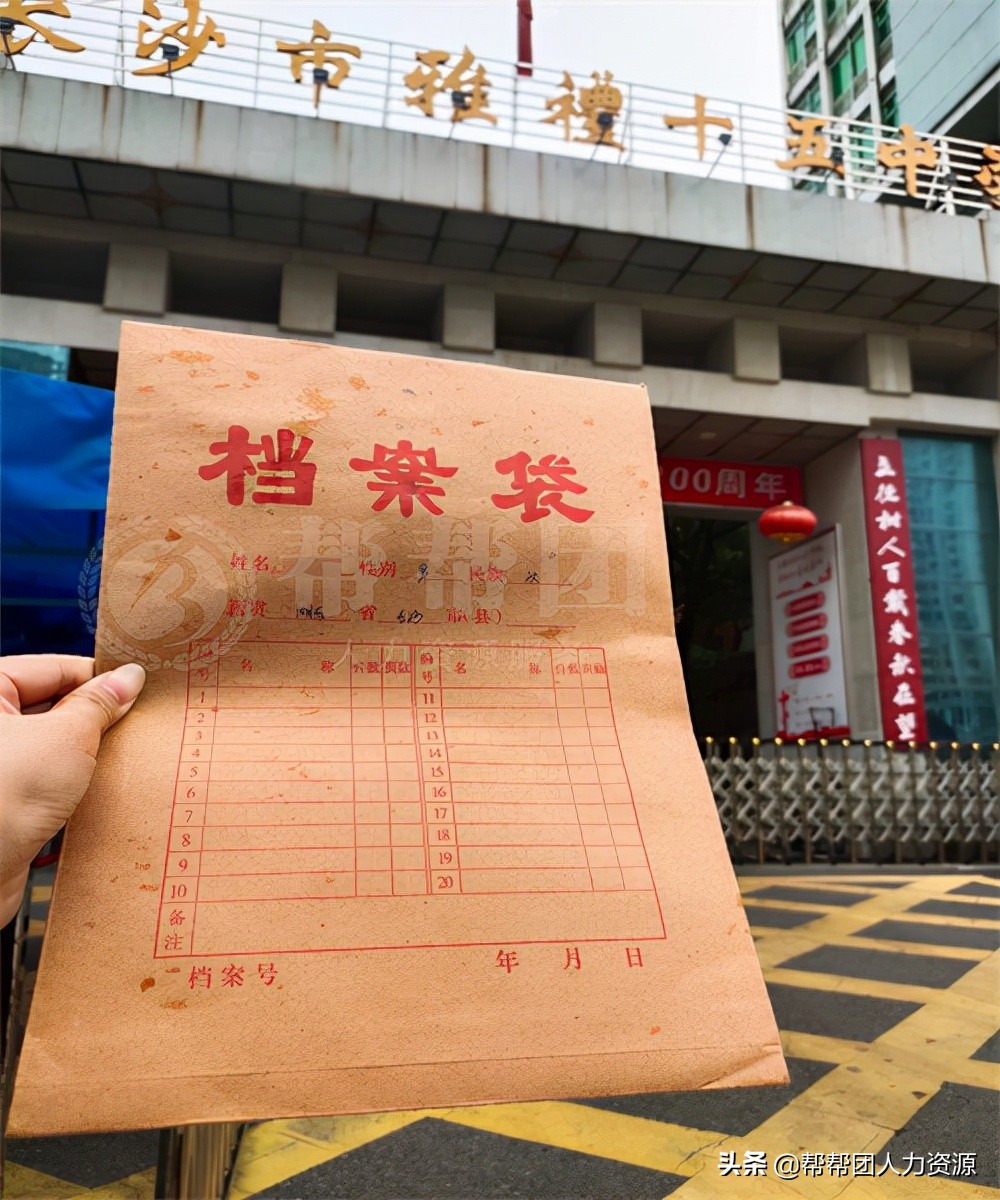 长沙市雅禮十五中学
100周年
立德树人百载春秋在望
档案袋
帮帮团
姓名 性别 男 民族 汉
籍贯 湖南 省 长沙 市(县)
编号 名 称 份数 页数 编号 名 称 份数 页数
1 11
2 12
3 13
4 14
5 15
6 16
7 17
8 18
9 19
10 20
备注
档案号 年 月 日
头条 @帮帮团人力资源